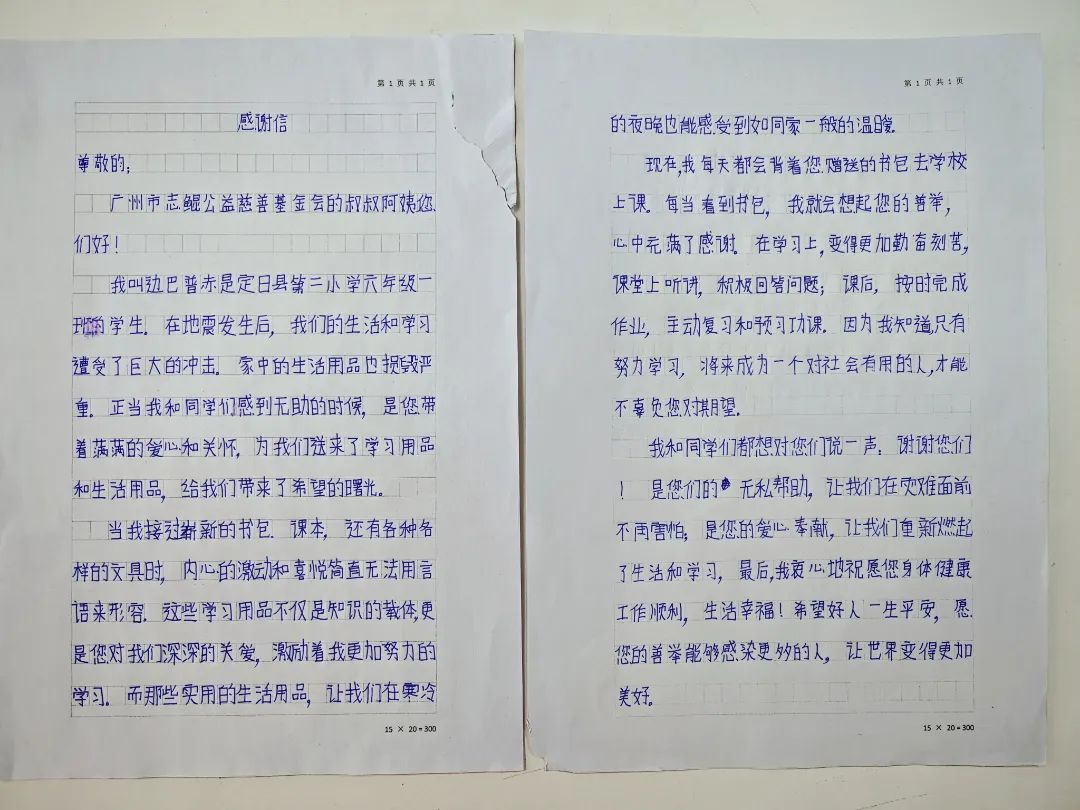 第 1 页 共 1 页
感谢信
尊敬的;
广州市志鲲公益慈善基金会的叔叔阿姨您
们好!
我叫边巴普赤是定日县第二小学六年级一
班的学生. 在地震发生后, 我们的生活和学习
遭受了巨大的冲击. 家中的生活用品也损毁严
重. 正当我和同学们感到无助的时候, 是您带
着满满的爱心和关怀, 为我们送来了学习用品
和生活用品, 给我们带来了希望的曙光。
当我接过崭新的书包. 课本, 还有各种各
样的文具时, 内心的激动和喜悦简直无法用言
语来形容. 这些学习用品不仅是知识的载体,更
是您对我们深深的关爱, 激励着我更加努力的
学习. 而那些实用的生活用品, 让我们在寒冷
15 × 20 = 300
第 1 页 共 1 页
的夜晚也能感受到如同家一般的温暖.
现在,我每天都会背着您赠送的书包去学校
上课. 每当看到书包, 我就会想起您的善举,
心中充满了感谢. 在学习上,变得更加勤奋刻苦,
课堂上听讲, 积极回答问题; 课后, 按时完成
作业, 主动复习和预习功课. 因为我知道,只有
努力学习, 将来成为一个对社会有用的人,才能
不辜负您对期望.
我和同学们都想对您们说一声: 谢谢您们
! 是您们的 无私帮助, 让我们在灾难面前
不再害怕; 是您的爱心奉献, 让我们重新燃起
了生活和学习, 最后,我衷心地祝愿您身体健康
工作顺利, 生活幸福! 希望好人一生平安, 愿
您的善举能够感染更多的人, 让世界变得更加
美好。
15 × 20 = 300